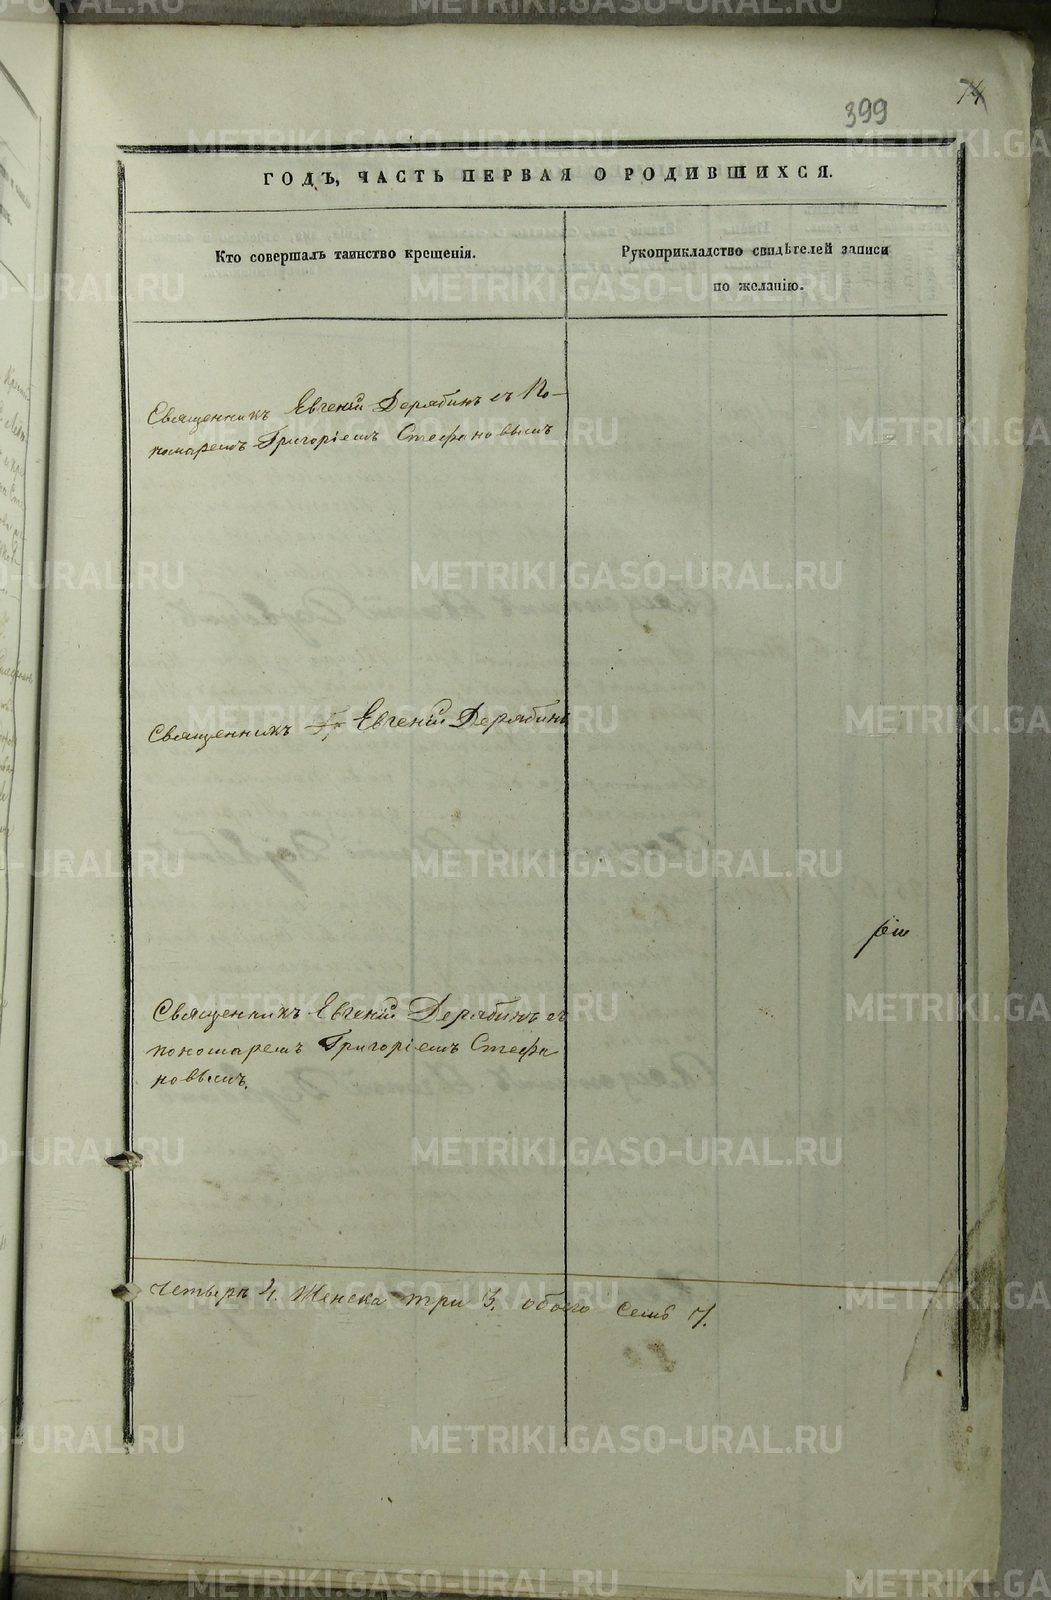 399
74
ГОДЪ, ЧАСТЬ ПЕРВАЯ О РОДИВШИХСЯ.
Кто совершалъ таинство крещенія.
Рукоприкладство свидѣтелей записи
по желанію.
Священникъ Евгеній Дерябинъ съ По-
номаремъ Григоріемъ Стефановымъ
Священникъ Гр Евгеній Дерябинъ
Священникъ Евгеній Дерябинъ съ
пономаремъ Григоріемъ Стефа
новымъ.
четыре 4. Женска три 3. обоего семь 7.
METRIKI.GASO-URAL.RU